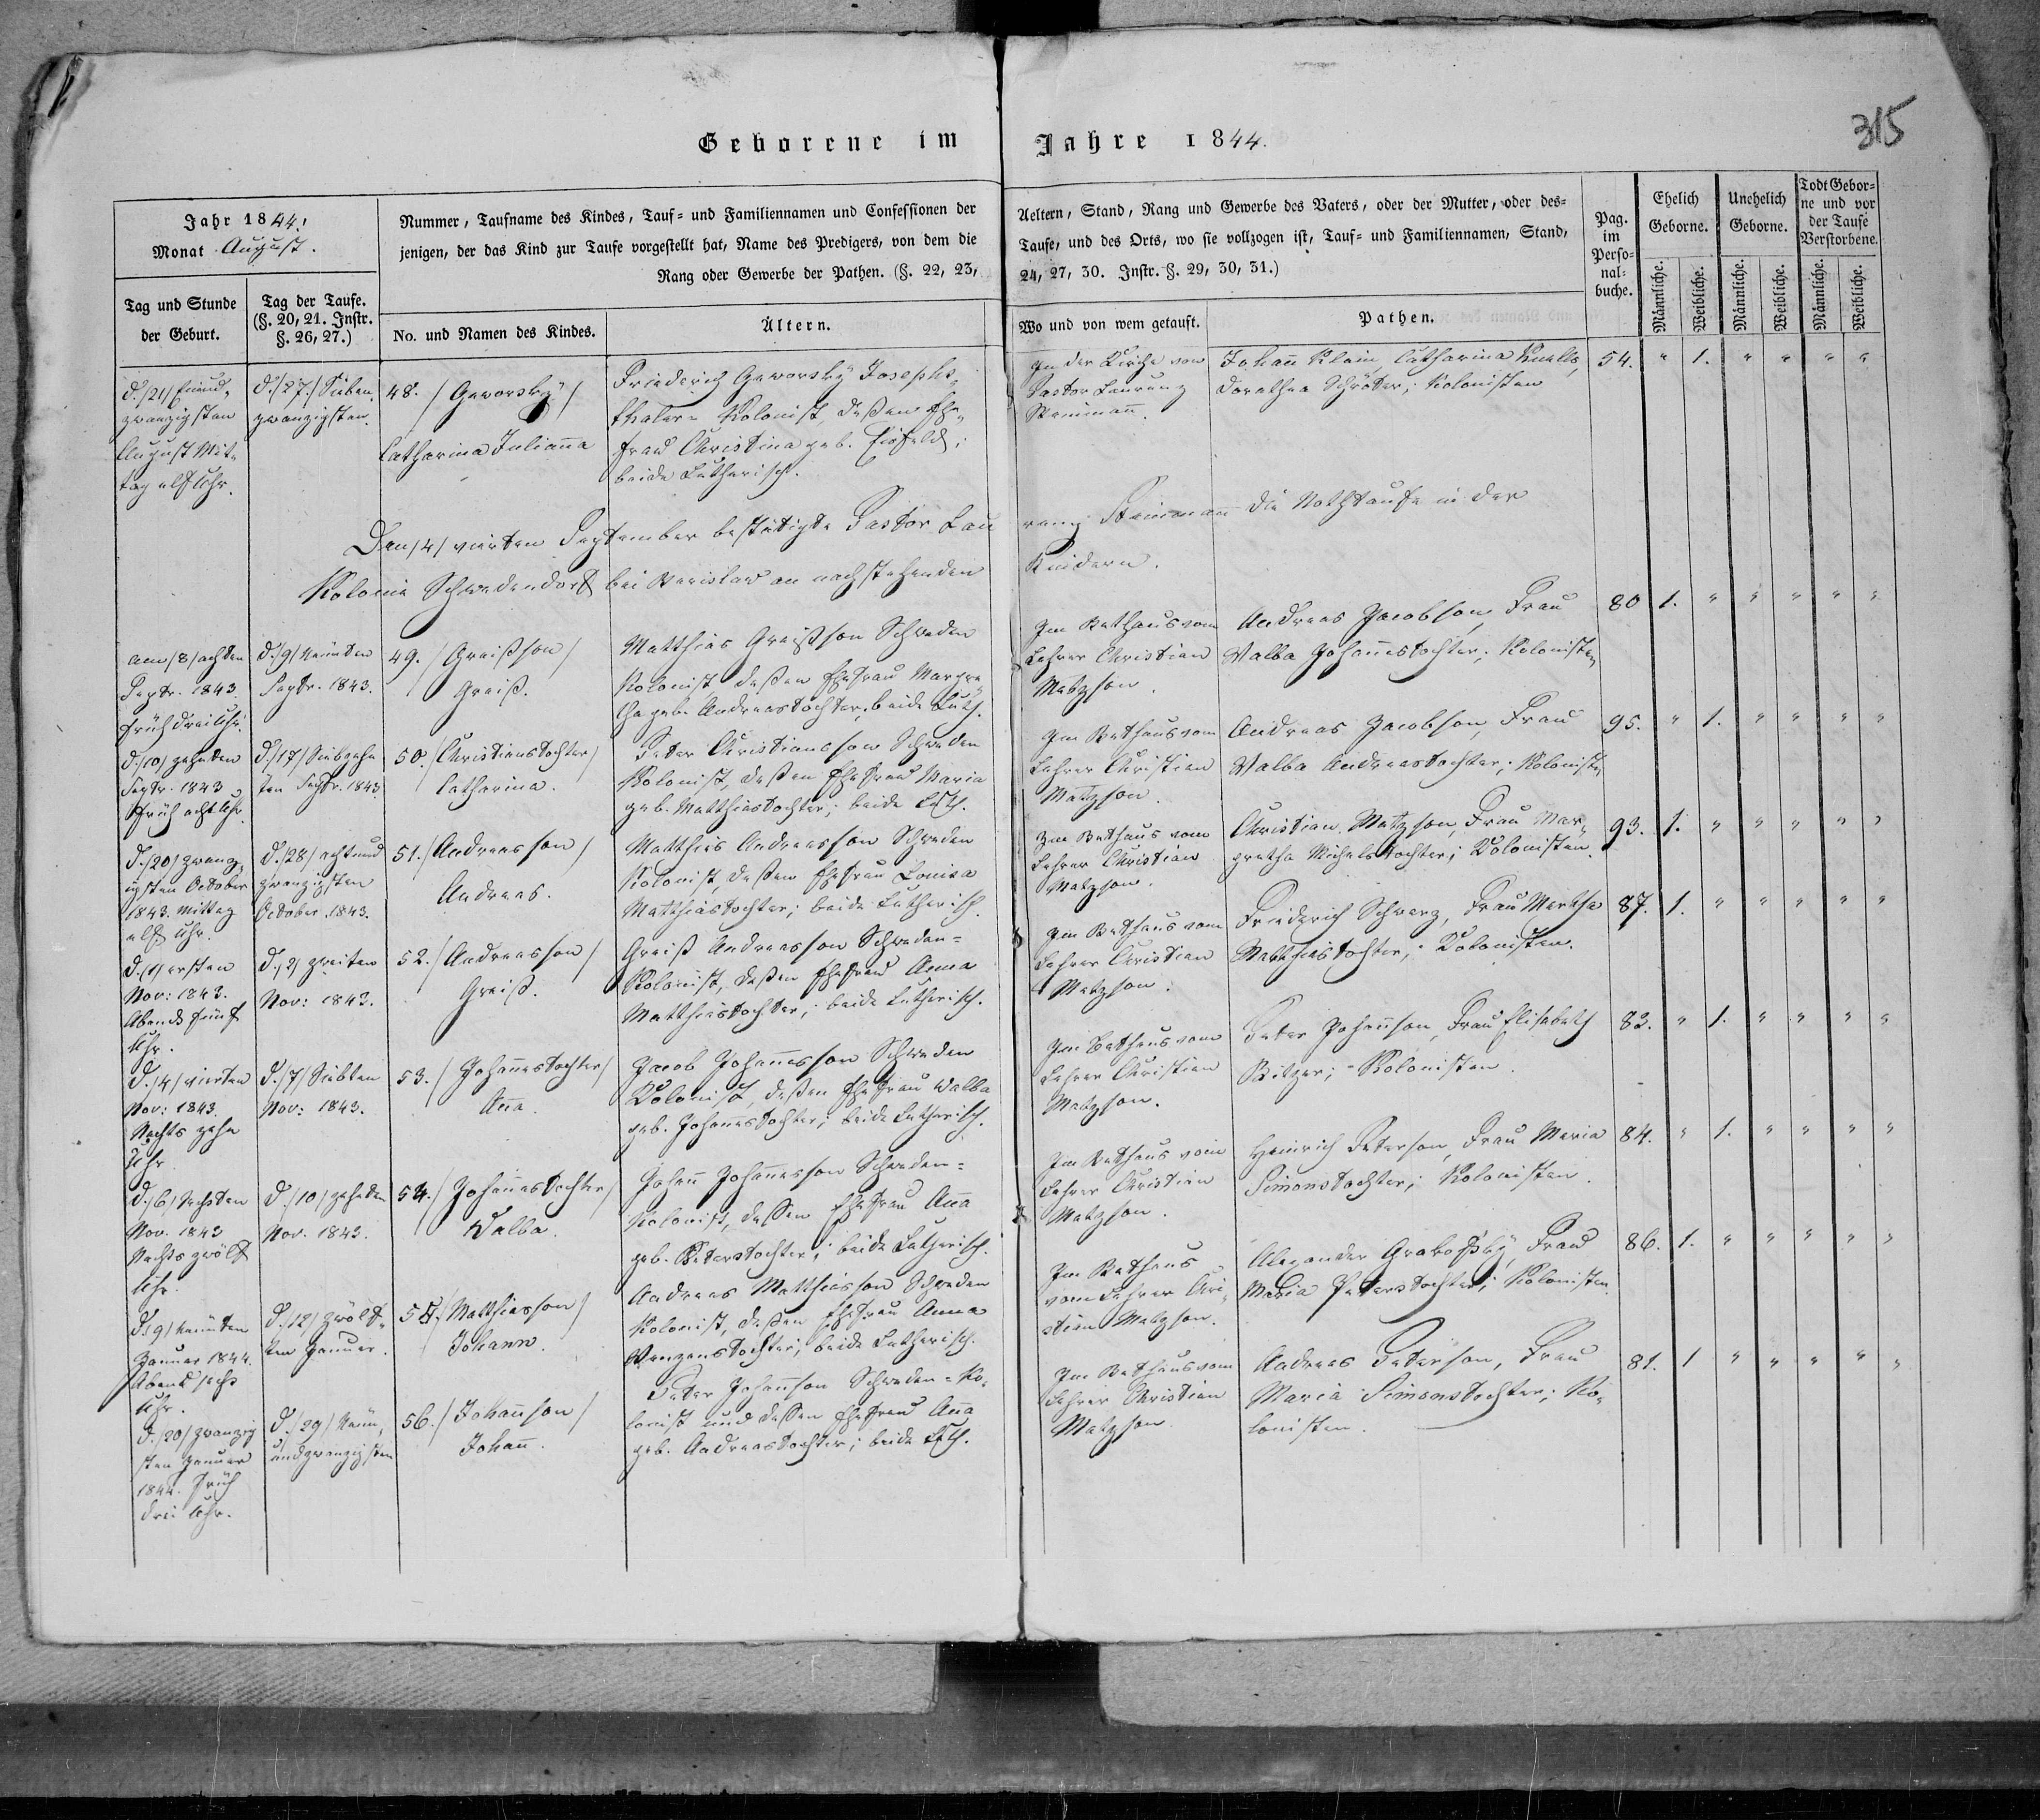 315
Geborene im Jahre 1844.
Jahr 1844.
Monat August.
Nummer, Taufname des Kindes, Tauf= und Familiennamen und Confessionen der
jenigen, der das Kind zur Taufe vorgestellt hat, Name des Predigers, von dem die
Rang oder Gewerbe der Pathen. (§. 22, 23,
Aeltern, Stand, Rang und Gewerbe des Vaters, oder der Mutter, oder des=
Taufe, und des Orts, wo sie vollzogen ist, Tauf= und Familiennamen, Stand,
24, 27, 30. Instr. §. 29, 30, 31.)
Pag.
im
Perso=
nal=
buche.
Ehelich
Geborne.
Unehelich
Geborne.
Todt Gebor=
ne und vor
der Taufe
Verstorbene.
Männliche.
Weibliche.
Männliche.
Weibliche.
Männliche.
Weibliche.
Tag und Stunde
der Geburt.
Tag der Taufe.
(§. 20, 21. Instr.
§. 26, 27.)
No. und Namen des Kindes.
Ältern.
Wo und von wem getauft.
Pathen.
d. /21/ Einund
zwanzigsten
August Mit=
tag elf Uhr.
d. /27/ Sieben
zwanzigsten.
48. / Gaworsky /
Catharina Julianna
Friederich Gaworsky Josephs=
thaler= Kolonist, deßen Ehe=
frau Christina geb. Eisfeld;
beide Lutherisch.
In der Kirche von
Pastor Laurenz
Steinmann.
Johann Klein, Catharina
Dorothea Schröder; Kolonisten
54. " 1. " " " "
Den /4/ vierten September bestätigte Pastor Lau renz Steinmann die Nothtaufe in der
Kolonie Schwedendorf bei Berislaw an nachstehenden Kindern.
am /8/ achten
Septr. 1843.
früh drei Uhr.
d. /9/ Neunten
Septr. 1843.
49. / Greißson /
Greiß.
Matthias Greißson Schweden
Kolonist deßen Ehefrau Margre
tha geb. Andreastochter; beide Luth.
Im Bethaus vom
Lehrer Christian
Matzson.
Andreas Jacobson, Frau
Walba Johannestochter; Kolonisten
80 1. " " " " "
d. /10/ zehnten
Septr. 1843
früh acht Uhr.
d. /17/ Siebzehn
ten Septr. 1843.
50. / Christianstochter /
Catharina.
Peter Christiansson Schweden
Kolonist, deßen Ehefrau Maria
geb. Matthiastochter; beide Luth.
Im Bethaus vom
Lehrer Christian
Matzson.
Andreas Jacobson, Frau
Walba Andreastochter; Koloniste
95. " 1. " " " "
d. /20/ zwanz
igsten October
1843. Mittag
elf Uhr.
d. /28/ achtund
zwanzigsten
October 1843.
51. / Andreasson /
Andreas.
Matthias Andreasson Schweden
Kolonist, deßen Ehefrau Louisa
Matthiastochter; beide Lutherisch.
Im Bethaus vom
Lehrer Christian
Matzson.
Christian Matzson, Frau Mar=
gretha Michelstochter; Kolonisten.
93. 1. " " " " "
d. /1/ ersten
Nov: 1843.
Abends fünf
Uhr.
d. /2/ zweiten
Nov: 1843.
52. / Andreasson /
Greiß.
Greiß Andreasson Schweden=
Kolonist, deßen Ehefrau Anna
Matthiastochter; beide Lutherisch.
Im Bethaus vom
Lehrer Christian
Matzson.
Friederich Schwarz, Frau Martha
Matthiastochter; Kolonisten.
87. 1. " " " " "
d. /4/ vierten
Nov: 1843.
Nachts zehn
Uhr
d. /7/ Siebten
Nov: 1843.
53. / Johannestochter /
Anna.
Jacob Johannesson Schweden
Kolonist, deßen Ehefrau Walba
geb. Johannestochter; beide Lutherisch.
Im Bethaus vom
Lehrer Christian
Matzson.
Peter Johannson, Frau Elisabeth
Bitzer; Kolonisten.
82. " 1. " " " "
d. /6/ Sechsten
Nov. 1843
Nachts zwölf
Uhr.
d. /10/ zehnten
Nov. 1843.
54. / Johannestochter /
Walba.
Johann Johannesson Schweden=
Kolonist, dessen Ehefrau Anna
geb. Peterstochter; beide Lutherisch.
Im Bethaus vom
Lehrer Christian
Matzson.
Heinrich Peterson, Frau Maria
Simonstochter; Kolonisten.
84. " 1. " " " "
d. /9/ Neunten
Januar 1844.
Abend sechs
Uhr.
d. /12/ Zwölf=
ten Januar.
55. / Matthiasson /
Johann.
Andreas Matthiasson Schweden
Kolonist, deßen Ehefrau Anna
beide Lutherisch.
Im Bethaus
vom Lehrer Chri=
stian Matzson.
Alexander Frau
Maria Peterstochter; Kolonisten.
86. 1. " " " " "
d. /20/ zwanzig
sten Januar
1844. Früh
drei Uhr.
d. /29/ Neun
undzwanzigsten
56. / Johannson /
Johann.
Peter Johannson Schweden=Ko=
lonist und dessen Ehefrau Anna
geb. Andreastochter; beide Luth.
Im Bethaus vom
Lehrer Christian
Matzson
Andreas Peterson, Frau
Maria Simonstochter; Ko=
lonisten.
81. 1 " " " " "